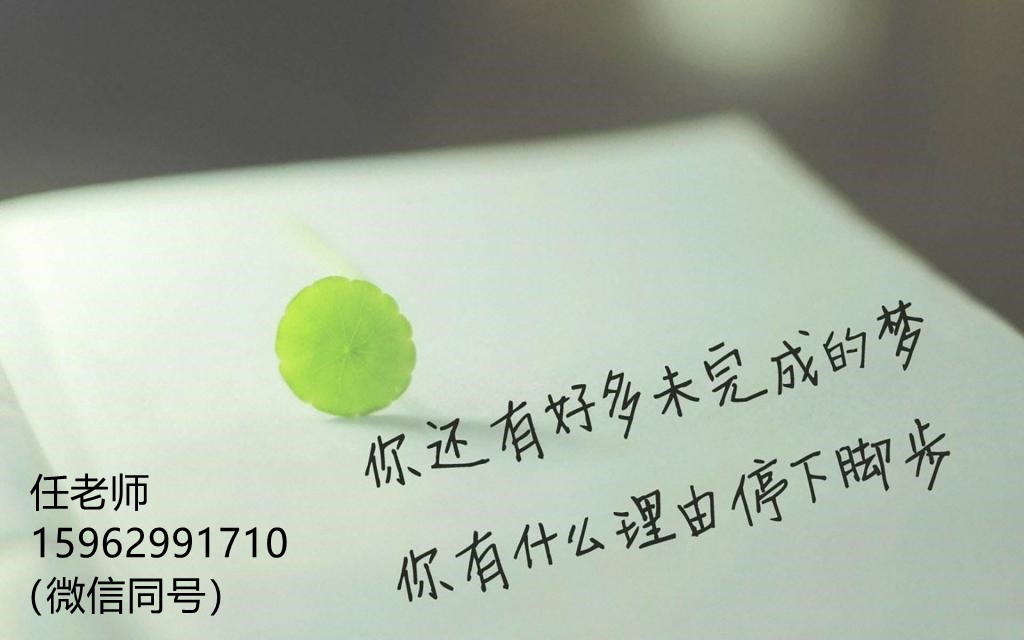 你还有好多未完成的梦
你有什么理由停下脚步
任老师
15962991710
(微信同号)